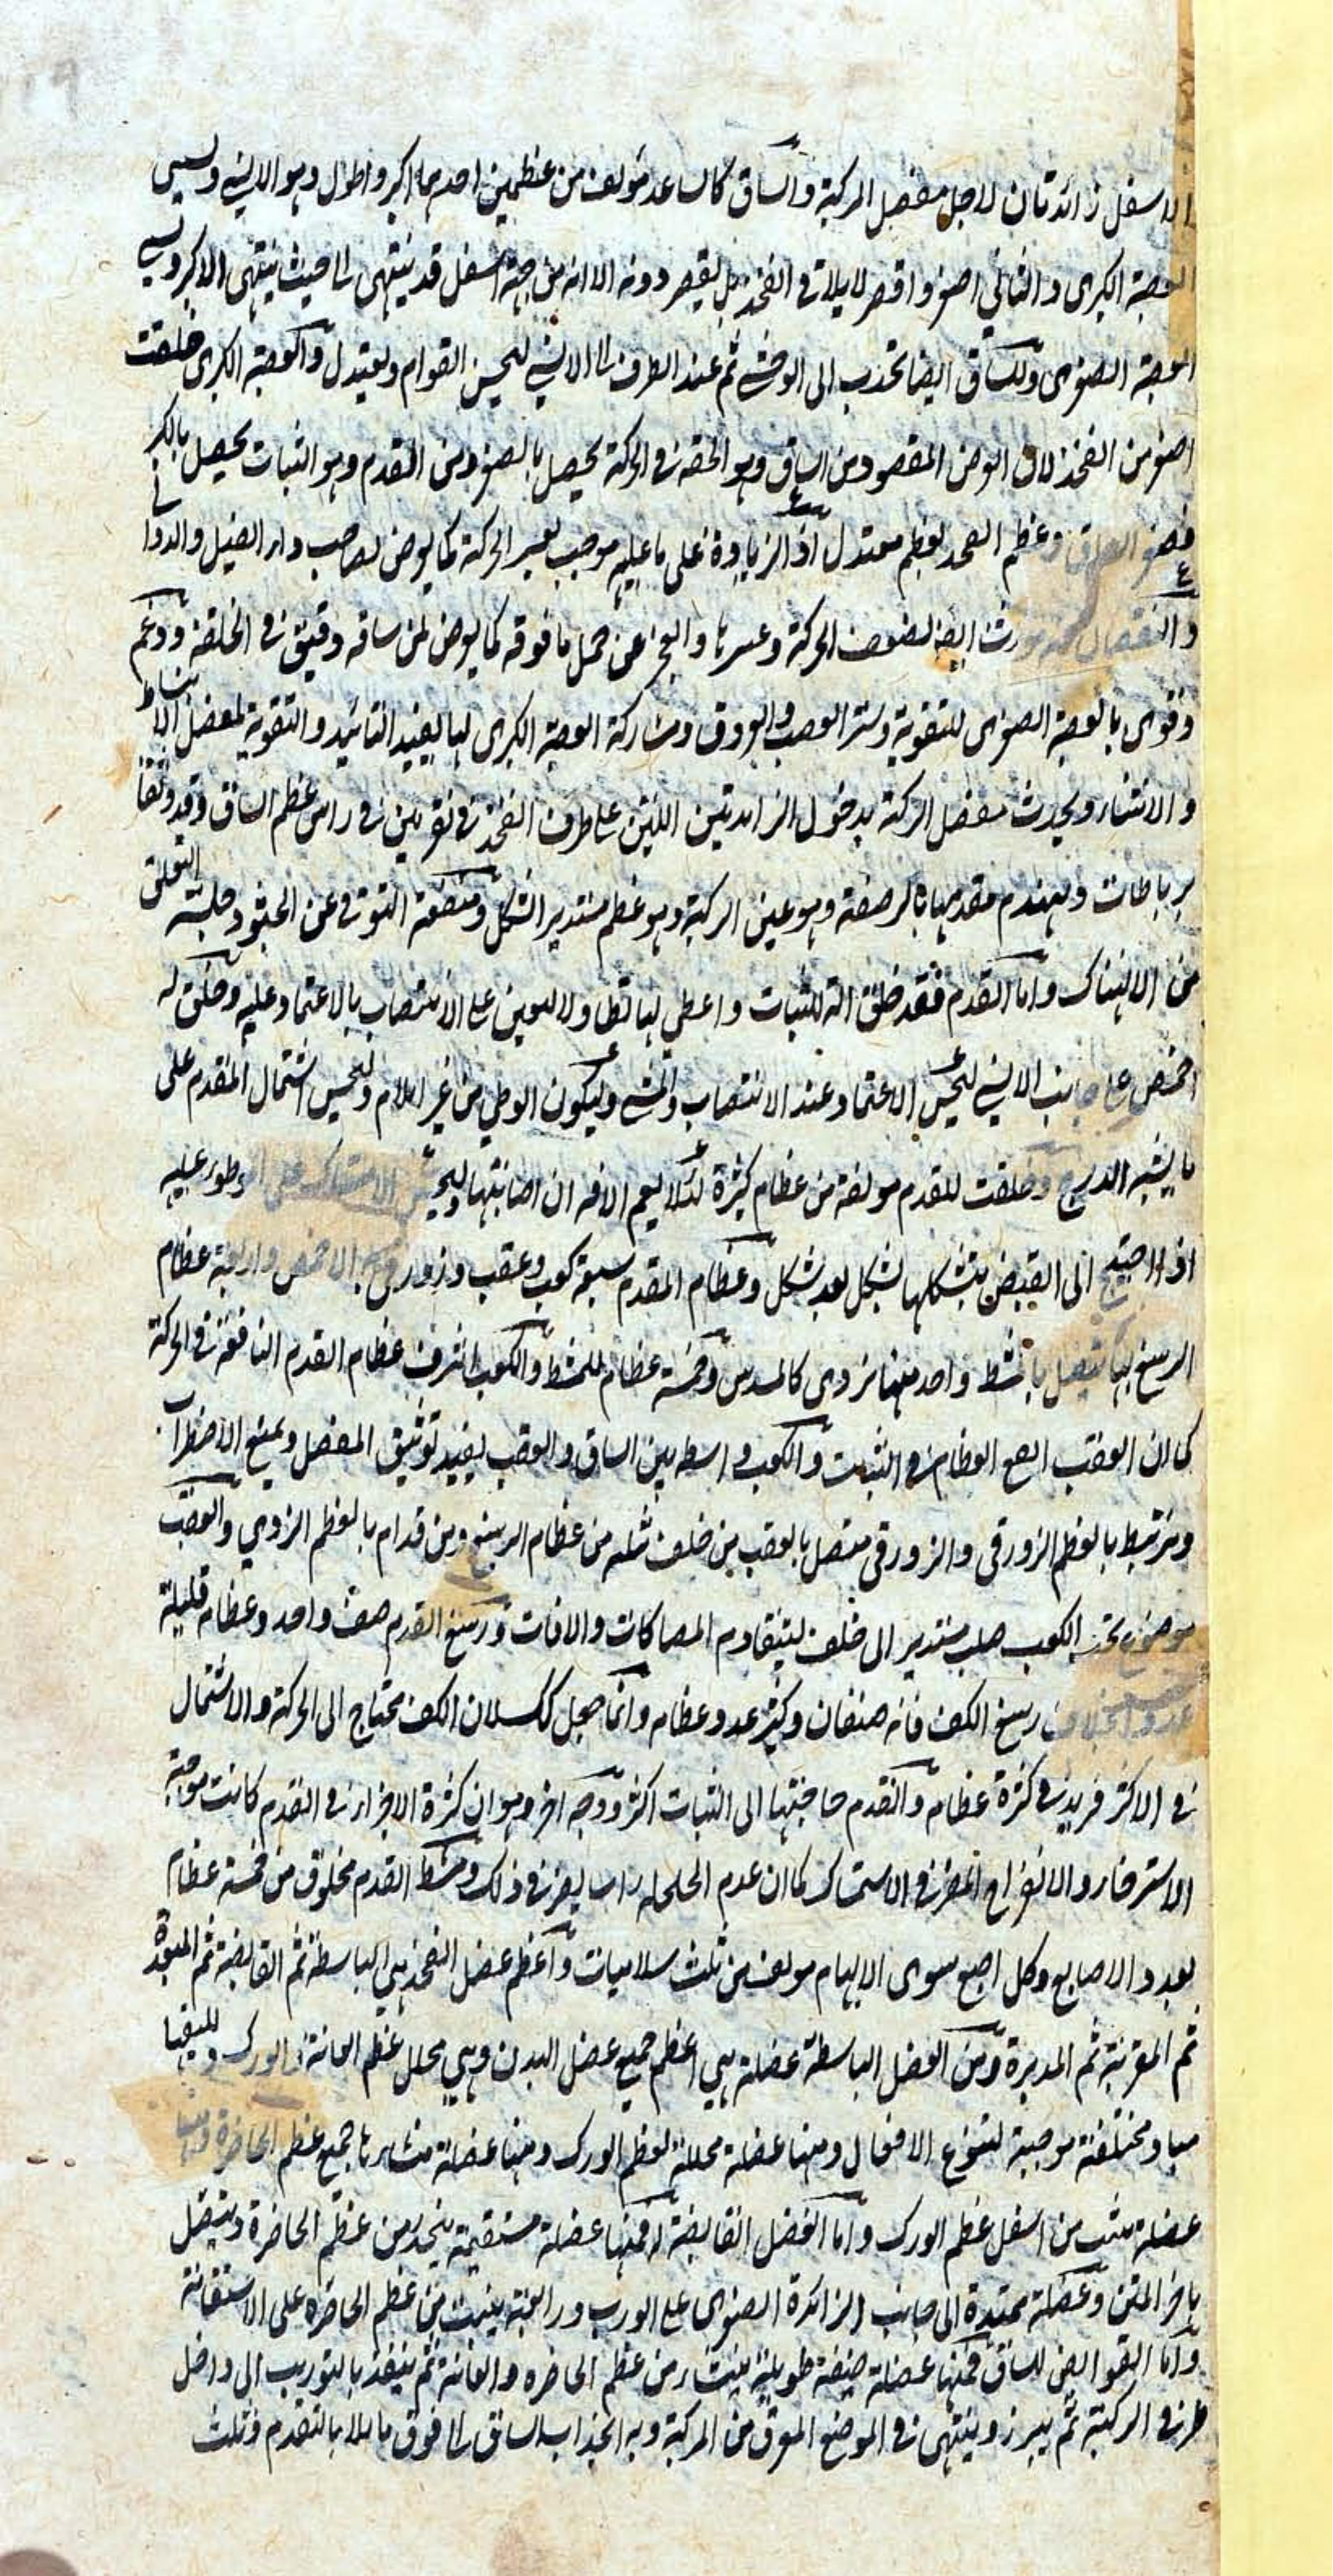 الاسفل زائدتان لاجل مفصل الركبة والساق كالساعد مؤلف من عظمين احدهما اكبر واطول وهو الانسي ويسمى
القصبة الكبرى والثاني اصغر واقصر لا يلاقي الفخذ بل يقصر دونه الا انه من جهة اسفل قد ينتهى الى حيث ينتهى الاكبر ويسمى
القصبة الصغرى وللساق ايضا تحدب الى الوحشي ثم عند الطرف الى الانسي ليحسن القوام ويعتدل والقصبة الكبرى خلقت
اصغر من الفخذ لان الغرض المقصود من الساق وهو الخفة في الحركة يحصل بالصغر ومن القدم وهو الثبات يحصل بالكبر
فصغر الساق وعظم الفخذ بعظم معتدل اذ الزيادة على ما عليه موجب لعسر الحركة كما يعرض لصاحب داء الفيل والدوالي
والنقصان منه يورث ايضا لضعف الحركة وعسرها والعجز عن حمل ما فوقه كما يعرض لمن ساقه دقيق في الخلقة ودعم
وقوى بالقصبة الصغرى للتقوية وستر العصب والعروق ومشاركة القصبة الكبرى لها ليفيد التائيد والتقوية لمفصل الانبساط
والانثناء ويحدث مفصل الركبة بدخول الزائدتين اللتين على طرف الفخذ في نقرتين في راس عظم الساق وقد وثقا
برباطات ويهندم مقدمها بالرضفة وهو عين الركبة وهو عظم مستدير الشكل ومنفعة التوقي عن الجثو وجلسة التعلق
من الانهتاك واما القدم فقد خلق الة للثبات واعطى لها تطاولا ليعين على الانتصاب بالاعتماد عليه وخلق له
اخمص على جانب الانسي ليحسن الاعتماد عند الانتصاب والمشي وليكون الوطي من غير ايلام وليحسن اشتمال القدم على
ما يشبه الدرج وخلقت للقدم مولفة من عظام كثيرة لئلا يعم الافة ان اصابتها وليحسن الاستمساك على الموطوء عليه
اذا احتيج الى القبض بتشكلها بشكل بعد شكل وعظام القدم سبعة كعب وعقب وزورقي به الاخمص واربعة عظام
الرسغ بها يتصل بالمشط واحد منها نردي كالمسدس وخمسة عظام للمشط والكعب اشرف عظام القدم النافعة في الحركة
كما ان العقب انفع العظام في الثبات والكعب واسطه بين الساق والعقب يفيد توثيق المفصل ويمنع الاضطراب
ويرتبط بالعظم الزورقي والزورقي متصل بالعقب من خلف ثلثه من عظام الرسغ ومن قدام بالعظم النردي والعقب
موضوع تحت الكعب صلب مستدير الى خلف ليتقاوم المصاكات والافات ورسغ القدم صف واحد وعظامه قليلة
عددا بخلاف رسغ الكف فانه صنفان وكثير عدد عظامه وانما جعل كك لان الكف محتاج الى الحركة والاشتمال
في الاكثر فزيد في كثرة عظامه والقدم حاجتها الى الثبات اكثر ووجه اخر وهو ان كثرة الاجزاء في القدم كانت موجبة
الاسترخاء والانفراج المضر في الاستمساك كما ان عدم الخلخلة راسا يضر في ذلك ومشط القدم مخلوق من خمسة عظام
بعدد الاصابع وكل اصبع سوى الابهام مولف من ثلث سلاميات واعظم عضل الفخذ هي الباسطة ثم القابضة ثم المبعدة
ثم المقربة ثم المديرة ومن العضل الباسطة عضلة هي اعظم جميع عضل البدن وهي مجلل عظم العانة والورك وليفها
مباد مختلفة موجبة لتنوع الافعال ومنها عضلة مجللة لعظم الورك ومنها عضلة منشاها جميع عظم الخاصرة ومنها
عضلة منبت من اسفل عظم الورك واما العضل القابضة فمنها عضلة مستقيمة ينحدر من عظم الخاصرة ويتصل
باخر المتن وعضلة ممتدة الى جانب الزائدة الصغرى على الورب ورابعة ينبت من عظم الخاصرة على الاستقامة
واما القوابض للساق فمنها عضلة ضيقة طويلة ينشا من عظم الخاصرة والعانة ثم ينفذ بالتوريب الى داخل
طرفي الركبة ثم يبرز وينتهى في الموضع المعرق من الركبة وبه انجذاب الساق الى فوق مائلا بالقدم وثلث